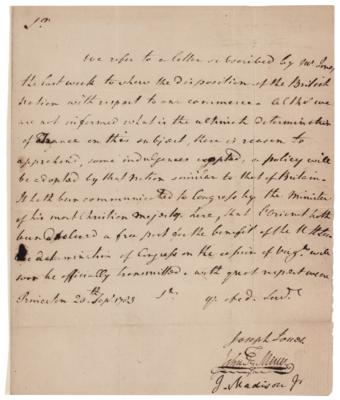 Sr.
We refer to a letter subscribed by Mr Jones
the last week to shew the disposition of the British
nation with respect to our commerce. altho' we
are not informed what is the ultimate determination
of France on this subject, there is reason to
apprehend, some indulgences excepted, a policy will
be adopted by that nation similar to that of Britain.
It hath been communicated to Congress by the Minister
of his most Christian Majesty here, that L'Orient hath
been declared a free port for the benefit of the U. States
The determination of Congress on the cession of Virga. will
soon be officially transmitted. with great respect we are
Princeton 20th. Sepr. 1783 Sr. yr. obed. Servts.
Joseph Jones
John F. Mercer
J. Madison Jr